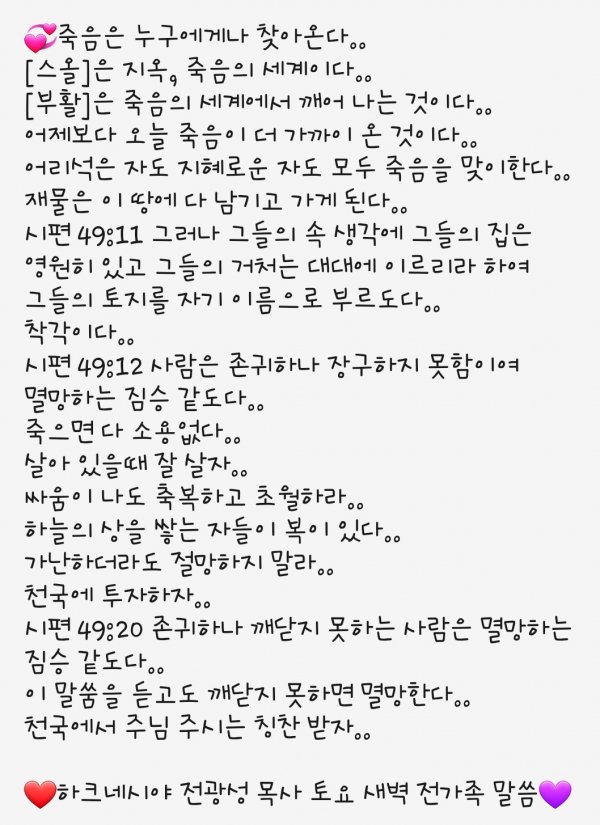 💞죽음은 누구에게나 찾아온다。。
[스올]은 지옥, 죽음의 세계이다。。
[부활]은 죽음의 세계에서 깨어 나는 것이다。。
어제보다 오늘 죽음이 더 가까이 온 것이다。。
어리석은 자도 지혜로운 자도 모두 죽음을 맞이한다。。
재물은 이 땅에 다 남기고 가게 된다。。
시편 49:11 그러나 그들의 속 생각에 그들의 집은
영원히 있고 그들의 거처는 대대에 이르리라 하여
그들의 토지를 자기 이름으로 부르도다。。
착각이다。。
시편 49:12 사람은 존귀하나 장구하지 못함이여
멸망하는 짐승 같도다。。
죽으면 다 소용없다。。
살아 있을때 잘 살자。。
싸움이 나도 축복하고 초월하라。。
하늘의 상을 쌓는 자들이 복이 있다。。
가난하더라도 절망하지 말라。。
천국에 투자하자。。
시편 49:20 존귀하나 깨닫지 못하는 사람은 멸망하는
짐승 같도다。。
이 말씀을 듣고도 깨닫지 못하면 멸망한다。。
천국에서 주님 주시는 칭찬 받자。。
❤️하크네시야 전광성 목사 토요 새벽 전가족 말씀💜